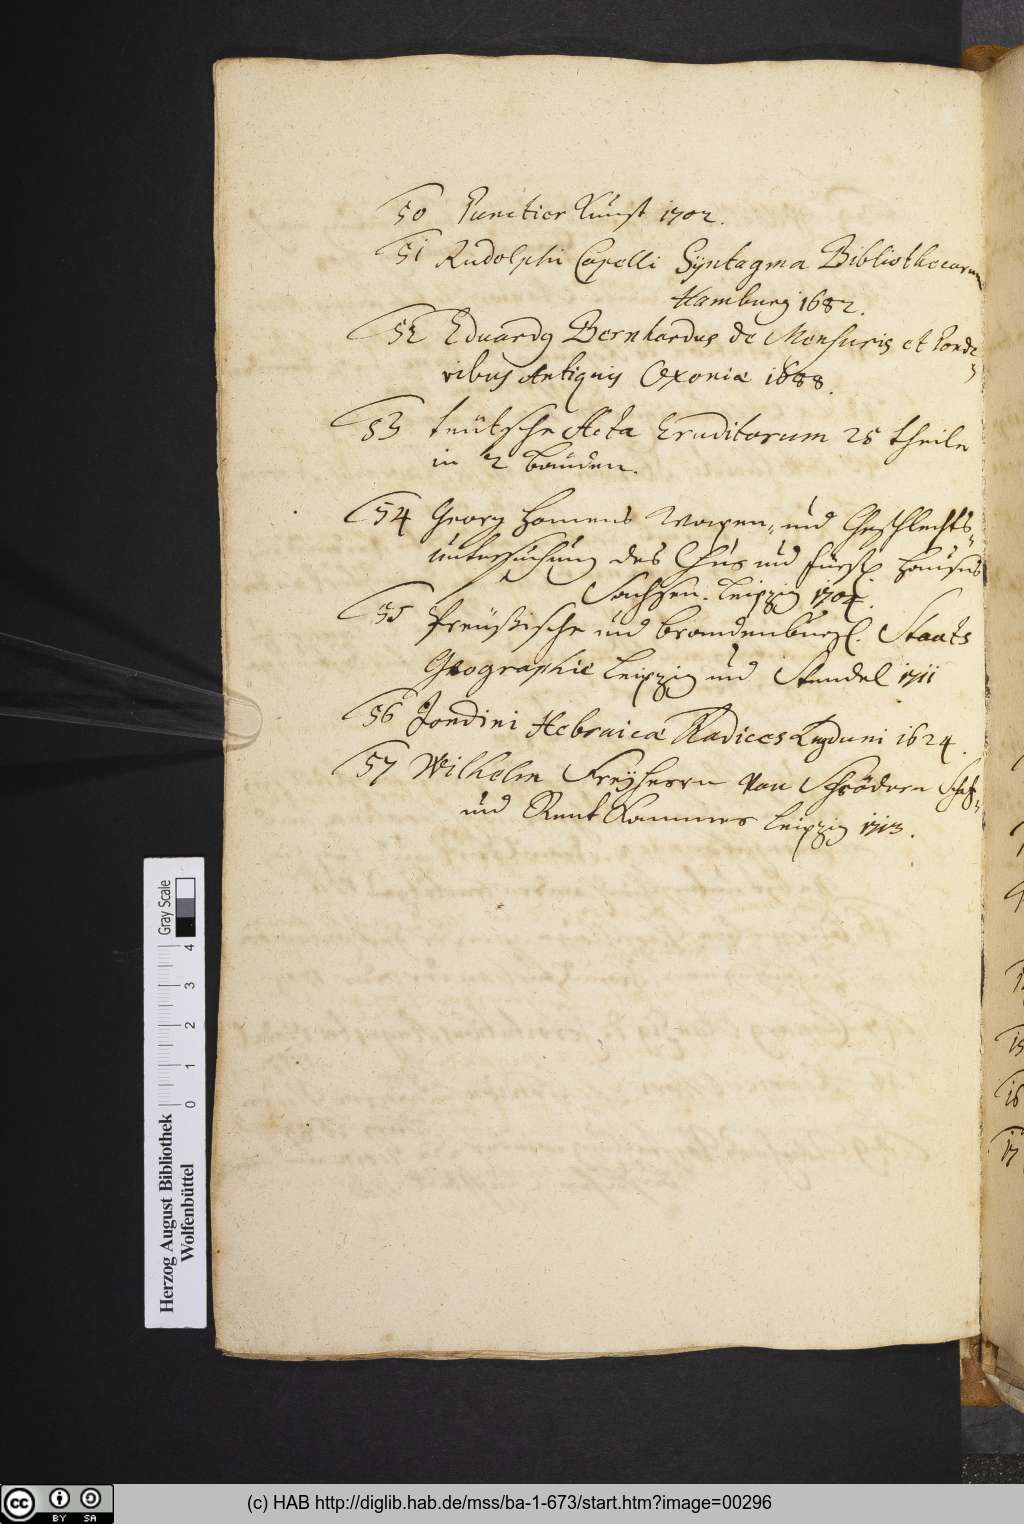 50 Punctier Kunst 1702.
51 Rudolphi Capelli Syntagma Bibliothecarum
Hamburg 1682.
52 Eduardg Bernhardus de Mensuris et Ponde
ribus Antiquis Oxoniæ 1688.
53 teütsche Acta Eruditorum 25 theile
in 2 bänden.
54 Georg Hornens Wapen= und Geschlechts=
untersuchung des Chur und Fürstl Hauses
Sachsen. Leipzig 1704.
55 Preüßische und brandenburgl. Staats
Geographie Leipzig und Stendel 1711
56 Jordini Hebraicæ Radices Lugduni 1624.
57 Wilhelm Freyherrn von Schrödern Schatz
und Rent Kammer Leipzig 1713.
15
16
17
Gray Scale
4
3
2
1
0
Herzog August Bibliothek
Wolfenbüttel
cc BY SA
(c) HAB http://diglib.hab.de/mss/ba-1-673/start.htm?image=00296